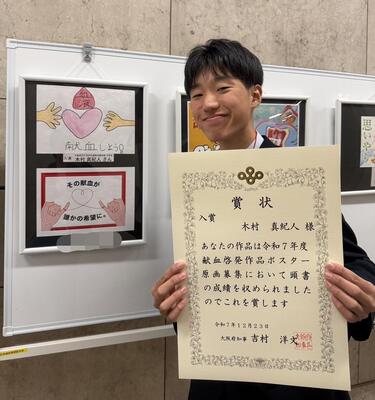 献血しよう
入賞 木村 真紀人 さん
その献血が
誰かの希望に。
思い
賞状
入賞
木村 真紀人 様
あなたの作品は令和7年度
献血啓発作品ポスター
原画募集において頭書
の成績を収められました
のでこれを賞します
令和7年12月23日
大阪府知事 吉村 洋文